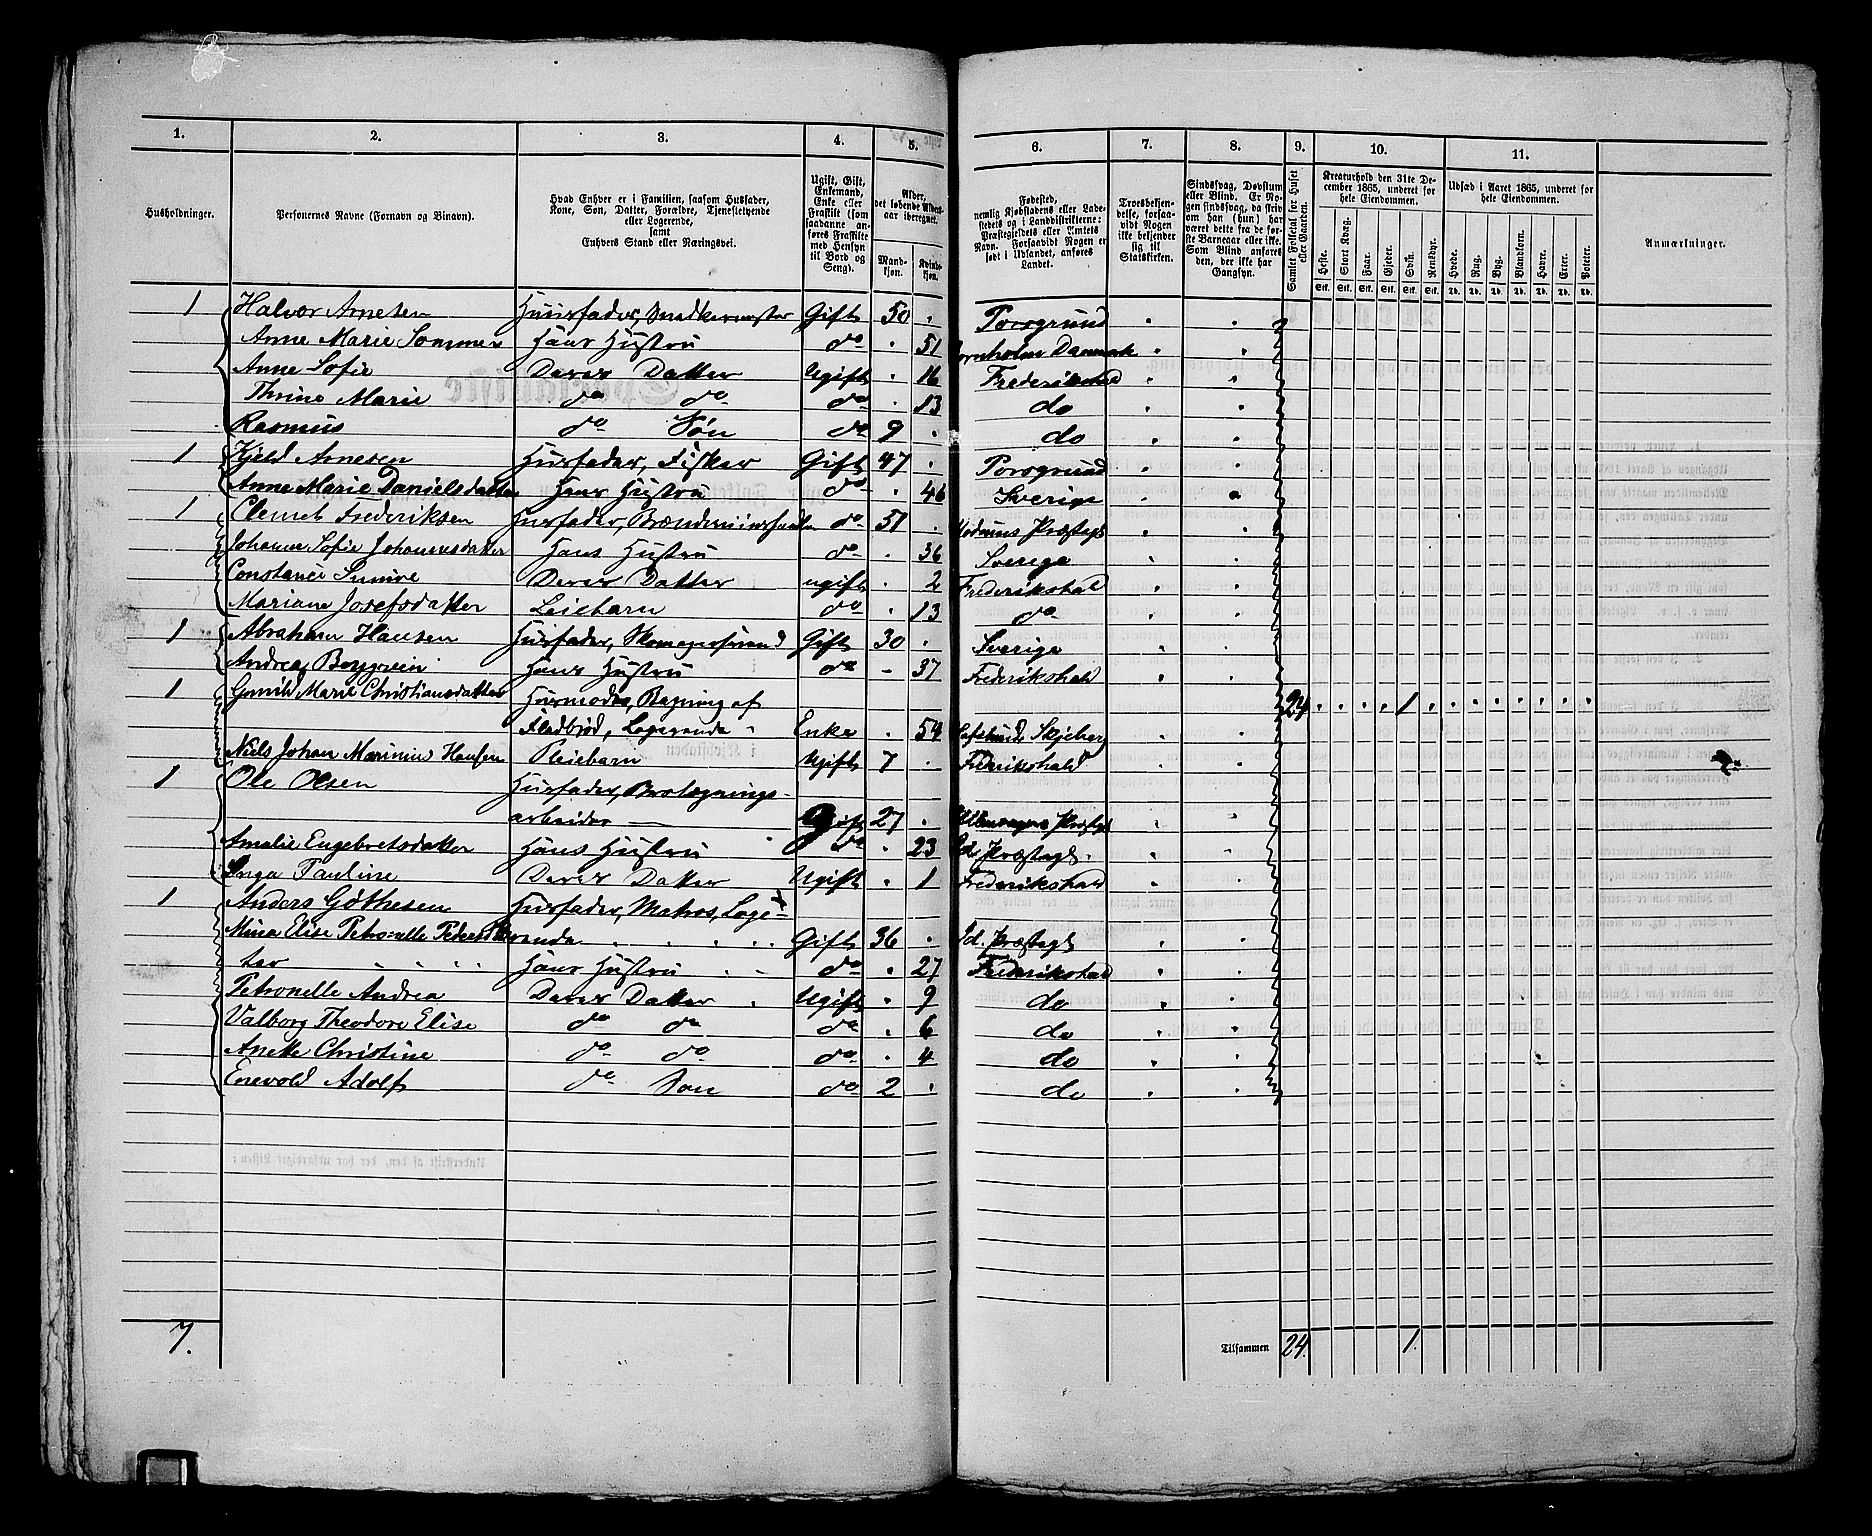 1. 2. 3. 4. 5. 6. 7. 8. 9. 10. 11.
Husholdninger.
Personernes Navne (Fornavn og Binavn).
Hvad Enhver er i Familien, saasom Husfader,
Kone, Søn, Datter, Forældre, Tjenestetyende
eller Logerende,
samt
Enhvers Stand eller Næringsvei.
Ugift, Gift,
Enkemand,
Enke eller
Fraskilt (som
saadanne an-
føres Fraskilte
med Hensyn
til Bord og
Seng).
Alder,
det løbende Alders-
aar iberegnet.
Mand-
kjøn.
Kvinde-
kjøn.
Fødested,
nemlig Kjøbstadens eller Lade-
stedets og i Landdistrikterne:
Præstegjeldets eller Amtets
Navn. Forsaavidt Nogen er
født i Udlandet, anføres
Landet.
Troesbekjen-
delse, forsaa-
vidt Nogen
ikke bekjender
sig til
Statskirken.
Sindssvag, Døvstum
eller Blind. Er No-
gen sindssvag, da skriv
om han (hun) har
været dette fra de før-
ste Barneaar eller ikke.
Som Blind anføres
den, der ikke har
Gangsyn.
Samlet Folketal for Huset
eller Gaarden.
Kreaturhold den 31te De-
cember 1865, underet for
hele Eiendommen.
Heste. Stort Kvæg. Faar. Gjeder. Sviin. Rensdyr.
Stk. Stk. Stk. Stk. Stk. Stk.
Udsæd i Aaret 1865, underet for
hele Eiendommen.
Hvede. Rug. Byg. Blandkorn. Havre. Erter. Poteter.
Td. Td. Td. Td. Td. Td. Td.
Anmærkninger.
1 Halvor Arnesen Huusfader, Snedkermester Gift 50 Porsgrund
Anne Marie Sommer Hans Hustru do 51 Bornholm Danmark
Anne Sofie Deres Datter Ugift 16 Frederikshald
Thrine Marie do do do 13 do
Rasmus do Søn do 9 do
1 Kjeld Arnesen Husfader, Fisker Gift 47 Porsgrund
Anne Marie Danielsdatter Hans Hustru do 46 Sverige
1 Clemet Frederiksen Husfader, do 51 Præstegt
Johanne Sofie Johannesdatter Hans Hustru do 36 Sverige
Constance Deres Datter ugift 2 Frederikshald
Mariane Josefsdatter Leiebarn do 13 do
1 Abraham Hansen Husfader, Skomagersvend Gift 30 Sverige
Andrea Hans Hustru do 37 Frederikshald
1 Gunild Marie Christiansdatter Husmoder, Bagning af 24 1
Fladbrød, Logerende Enke 54 Skjeberg
Niels Johan Marinius Hansen Pleiebarn Ugift 7 Frederikshald
1 Ole Olsen Husfader, Brolægnings-
arbeider Gift 27 Præstegt
Amalie Engebretsdatter Hans Hustru do 23 Id. Præstegt.
Inga Pauline Deres Datter Ugift 1 Frederikshald
1 Anders Gøthesen Husfader, Matros, Loge-
Mina Elise Petronelle Petersdat rende Gift 36 Id. Præstegt
ter Hans Hustru do 27 Frederikshald
Petronelle Andrea Deres Datter Ugift 9 do
Valborg Theodore Elise do do do 6 do
Anette Christine do do do 4 do
Enevold Adolf do Søn do 2 do
7. Tilsammen 24. 1.